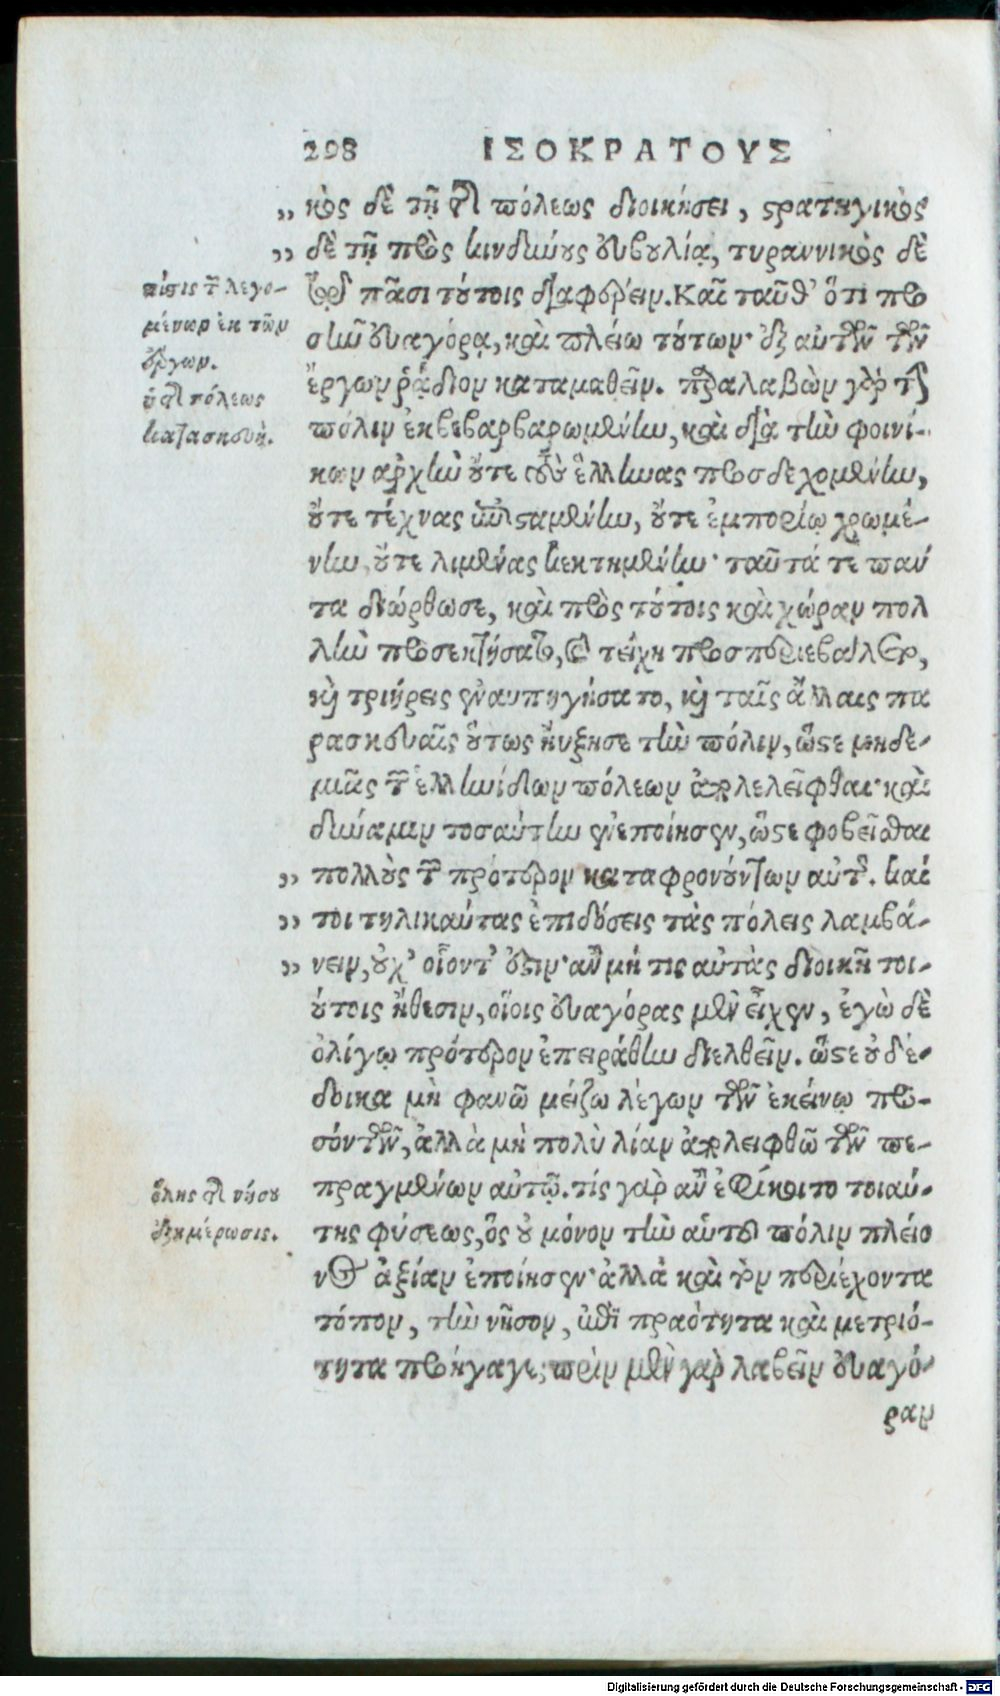 298 ΙΣΟΚΡΑΤΟΥΣ
„ κὸς δὲ τῇ τῆς πόλεως διοικήσει, στρατηγικὸς
„ δὲ τῇ πρὸς κινδύνους εὐβουλίᾳ, τυραννικὸς δὲ
πίστις τῶν λεγο-
μένων ἐκ τῶν
ἔργων.
ἡ τῆς πόλεως
κατασκευή.
πᾶσι τούτοις διαφέρειν. Καὶ ταῦθ' ὅτι προ
σῆν εὐαγόρᾳ, καὶ πλείω τούτων· ἐξ αὐτῶν τῶν
ἔργων ῥᾴδιον καταμαθεῖν. παραλαβὼν γὰρ τὴν
πόλιν ἐκβεβαρβαρωμένην, καὶ διὰ τὴν φοινί-
κων ἀρχὴν οὔτε τοὺς ἕλληνας προσδεχομένην,
οὔτε τέχνας ἐπισταμένην, οὔτε ἐμπορίῳ χρωμέ-
νην, οὔτε λιμένας κεκτημένην· ταῦτά τε πάν
τα διώρθωσε, καὶ πρὸς τούτοις καὶ χώραν πολ
λὴν προσεκτήσατο, καὶ τείχη προσπεριεβάλετο,
καὶ τριήρεις ἐναυπηγήσατο, καὶ ταῖς ἄλλαις πα
ρασκευαῖς οὕτως ηὔξησε τὴν πόλιν, ὥστε μηδε-
μιᾶς τῶν ἑλληνίδων πόλεων ἀπολελεῖφθαι· καὶ
δύναμιν τοσαύτην ἐνεποίησεν, ὥστε φοβεῖσθαι
„ πολλοὺς τῶν πρότερον καταφρονούντων αὐτῆς. καί
„ τοι τηλικαύτας ἐπιδόσεις τὰς πόλεις λαμβά-
„ νειν, οὐχ' οἷοντ' ἐστιν· ἂν μή τις αὐτὰς διοικῇ τοι-
ούτοις ἤθεσιν, οἵοις εὐαγόρας μὲν εἶχεν, ἐγὼ δὲ
ὀλίγῳ πρότερον ἐπειράθην διελθεῖν. ὥστε οὐ δέ-
δοικα μὴ φανῶ μείζω λέγων τῶν ἐκείνῳ προ-
σόντων, ἀλλὰ μὴ πολὺ λίαν ἀπολειφθῶ τῶν πε-
πραγμένων αὐτῷ. τίς γὰρ ἂν ἐφίκοιτο τοιαύ-
ὅλης τῆς νήσου
ἐξημέρωσις.
της φύσεως, ὃς οὐ μόνον τὴν αὑτοῦ πόλιν πλείο
νος ἀξίαν ἐποίησεν· ἀλλὰ καὶ τὸν περιέχοντα
τόπον, τὴν νῆσον, ἐπὶ πραότητα καὶ μετριό-
τητα προήγαγε; πρὶν μὲν γὰρ λαβεῖν εὐαγό-
ραν
Digitalisierung gefördert durch die Deutsche Forschungsgemeinschaft - DFG